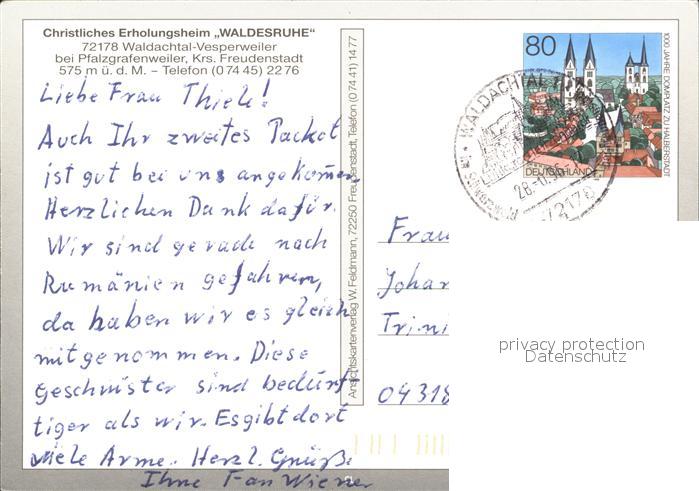 Christliches Erholungsheim „WALDESRUHE"
72178 Waldachtal-Vesperweiler
bei Pfalzgrafenweiler, Krs. Freudenstadt
575 m ü. d. M. – Telefon (0 74 45) 22 76
Liebe Frau Thiele!
Auch Ihr zweites Packet
ist gut bei uns angekommen.
Herzlichen Dank dafür.
Wir sind gerade nach
Rumänien gefahren,
da haben wir es gleich
mitgenommen. Diese
Geschwister sind bedürf
tiger als wir. Es gibt dort
viele Arme. Herzl. Grüße
Ihre Fam Wiener
Ansichtskartenverlag W. Feldmann, 72250 Freudenstadt, Telefon (0 74 41) 14 77
80
1000 JAHRE DOMPLATZ ZU HALBERSTADT
DEUTSCHLAND
WALDACHTAL
72178
Frau
Johan
Trini
04318
privacy protection
Datenschutz